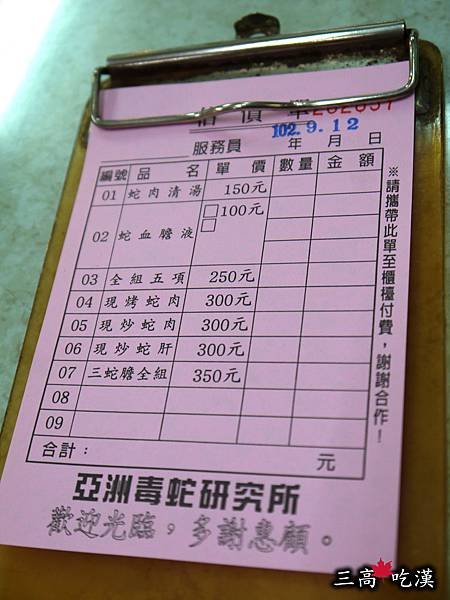 估價單 202037
102.9.12
服務員 年 月 日
編號 品名 單價 數量 金額
01 蛇肉清湯 150元
02 蛇血膽液 □100元
□
03 全組五項 250元
04 現烤蛇肉 300元
05 現炒蛇肉 300元
06 現炒蛇肝 300元
07 三蛇膽全組 350元
08
09
合計： 元
※請攜帶此單至櫃檯付費，謝謝合作！
亞洲毒蛇研究所
歡迎光臨，多謝惠顧。
三高 吃漢